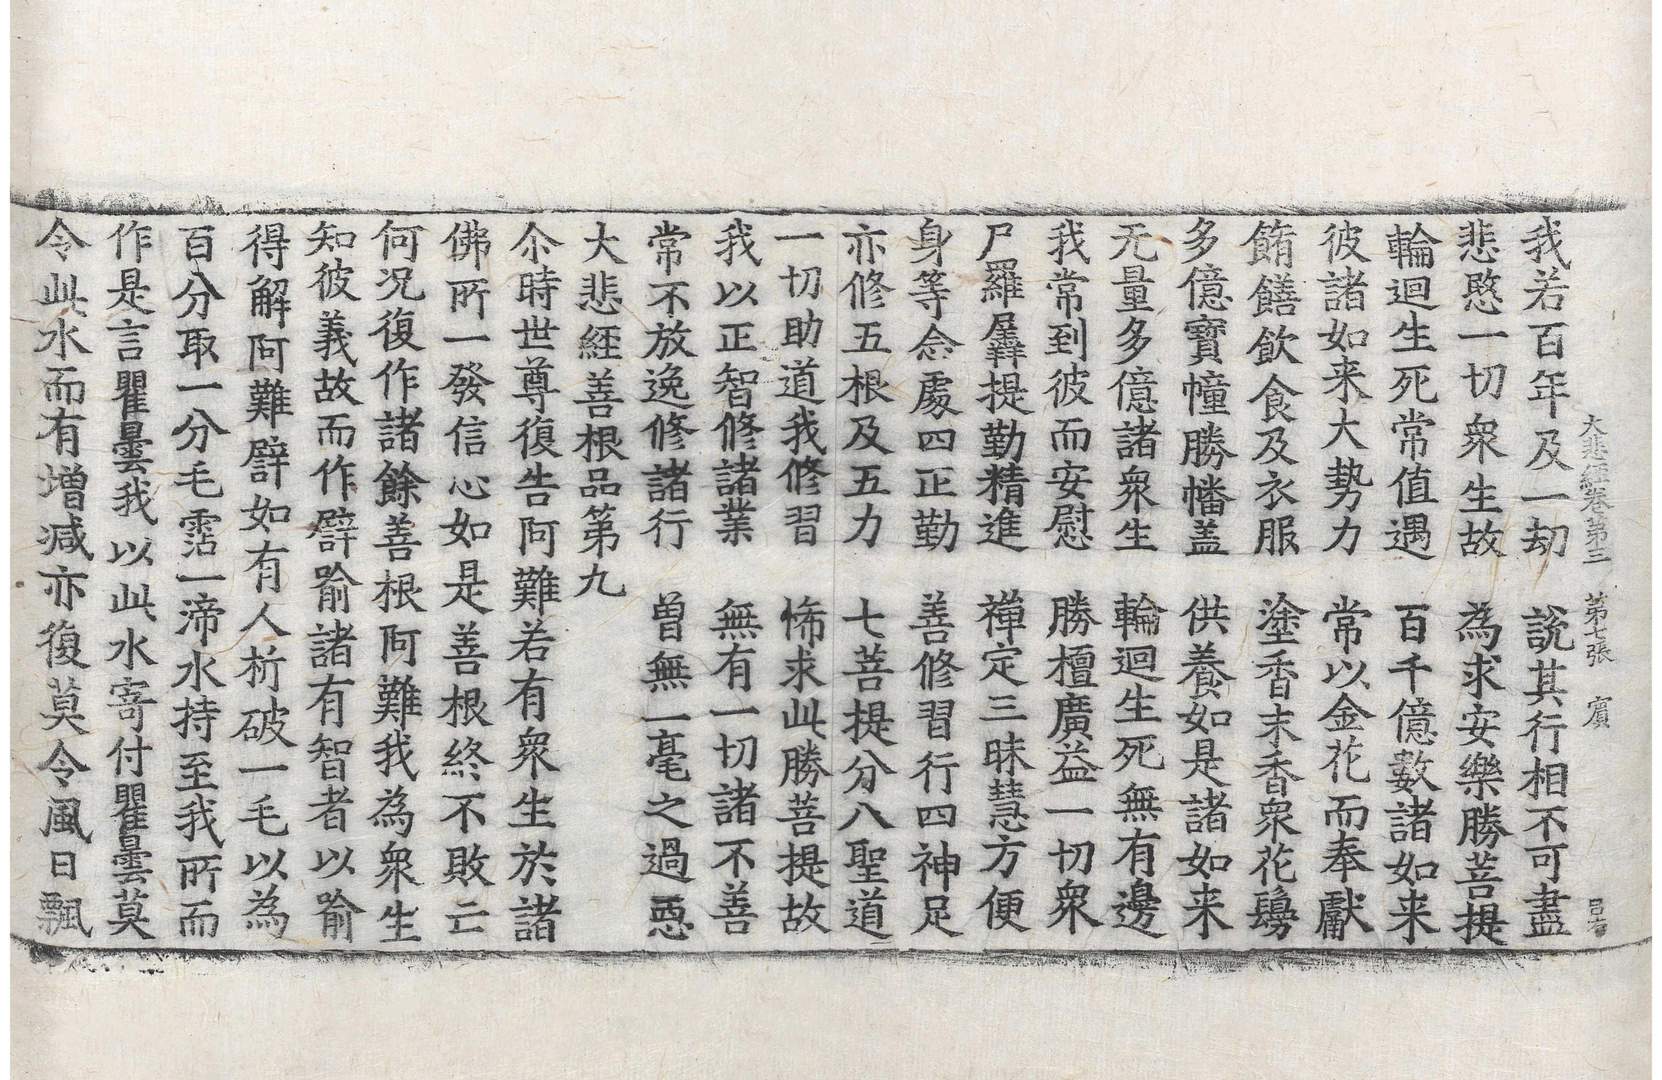 大悲經卷第三 第七張 賓
我若百年及一劫 說其行相不可盡
悲愍一切衆生故 為求安樂勝菩提
輪迴生死常值遇 百千億數諸如来
彼諸如来大勢力 常以金花而奉獻
餚饍飲食及衣服 塗香末香衆花鬘
多億寶幢勝幡盖 供養如是諸如来
无量多億諸衆生 輪迴生死無有邊
我常到彼而安慰 勝檀廣益一切衆
尸羅羼提勤精進 禪定三昧慧方便
身等念處四正勤 善修習行四神足
亦修五根及五力 七菩提分八聖道
一切助道我修習 悕求此勝菩提故
我以正智修諸業 無有一切諸不善
常不放逸修諸行 曾無一毫之過惡
大悲經善根品第九
尒時世尊復告阿難若有衆生於諸
佛所一發信心如是善根終不敗亡
何况復作諸餘善根阿難我為衆生
知彼義故而作譬喻諸有智者以喻
得解阿難譬如有人析破一毛以為
百分取一分毛霑一渧水持至我所而
作是言瞿曇我以此水寄付瞿曇莫
令此水而有增減亦復莫令風日飄